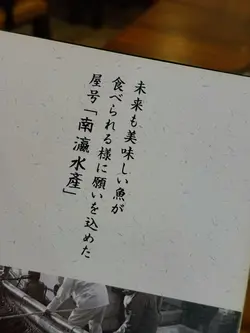 未来も美味しい魚が
食べられる様に願いを込めた
屋号「南瀛水産」